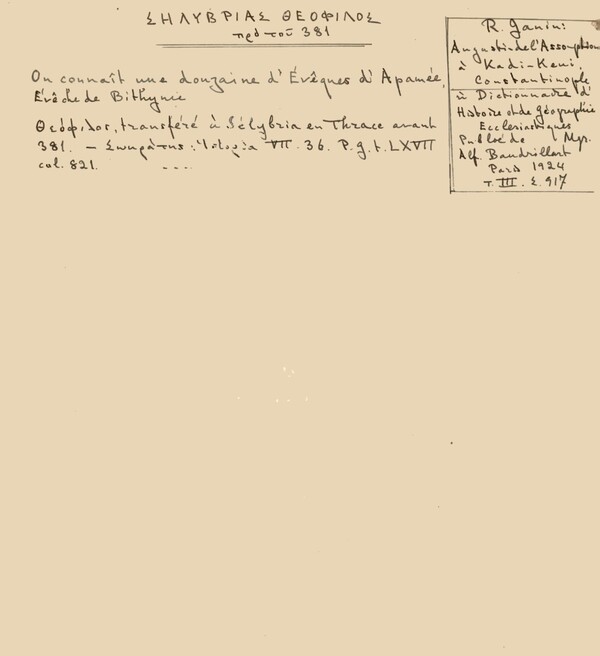 ΣΗΛΥΒΡΙΑΣ ΘΕΟΦΙΛΟΣ
πρὸ τοῦ 381
On connaît une douzaine d'Évêques d'Apamée,
Évêché de Bithynie
Θεόφιλος, transféré à Sélybria en Thrace avant
381. – Σωκράτης: Ἱστορία VII. 36. P.g.t. LXVII
col. 821. ....
R. Janin:
Augustin de l'Assomption
à Kadi-Keui,
Constantinople
ù Dictionnaire d'
Histoire et de Géographie
Ecclesiastiques
Publié de Mgr.
Alf. Baudrillart
Paris 1924
T. III. Σ. 917